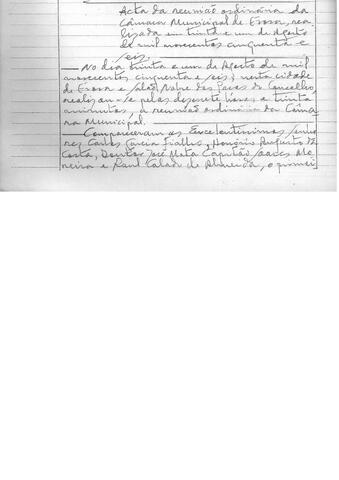 Acta da reunião ordinária da
Câmara Municipal de Evora, rea-
lizada em trinta e um de Agosto
de mil novecentos cinquenta e
seis.
No dia trinta e um de Agosto de mil
novecentos cinquenta e seis, nesta cidade
de Evora e Salão Nobre dos Paços do Concelho,
realizou-se pelas dezassete horas e trinta
minutos, a reunião ordinária da Câma-
ra Municipal.
Compareceram os Excelentissimos Senho-
res Carlos Garcia Fialho, Honorio Augusto da
Costa, Doutor José Mata Capitão Soares Mo-
reira e Raul Calado de Almeida, o primei